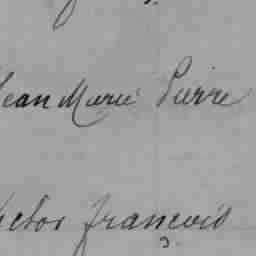 Jean Marie Pierre
Victor François